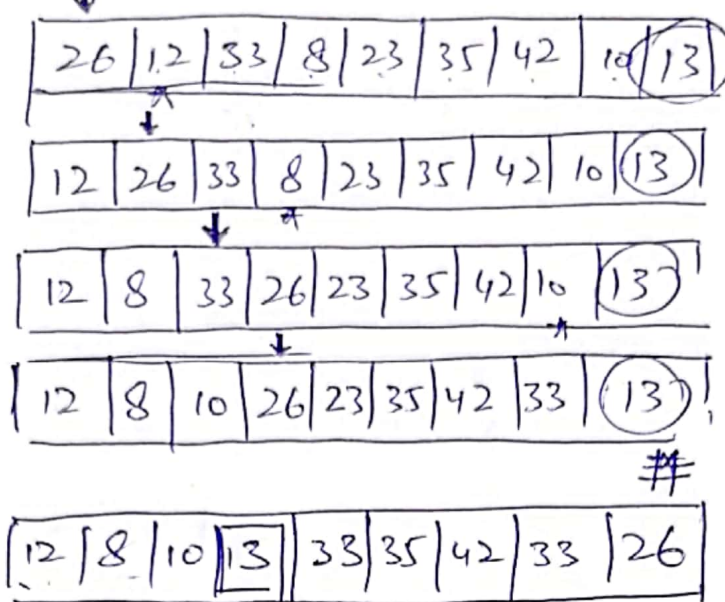 26 12 33 8 23 35 42 10 13
12 26 33 8 23 35 42 10 13
12 8 33 26 23 35 42 10 13
12 8 10 26 23 35 42 33 13
12 8 10 13 33 35 42 33 26